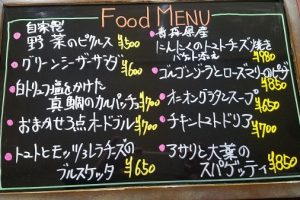 Food MENU
自家製
野菜のピクルス ¥500
グリーンシーザーサラダ ¥600
白トリュフ塩をかけた
真鯛のカルパッチョ ¥700
おまかせ3点オードブル ¥700
トマトとモッツァレラチーズの
ブルスケッタ ¥650
青森県産
にんにくのトマトチーズ焼き
バケット添え ¥980
ゴルゴンゾーラとローズマリーのピザ
¥850
オニオングラタンスープ
¥650
チキントマトドリア
¥700
アサリと大葉の
スパゲッティ ¥850